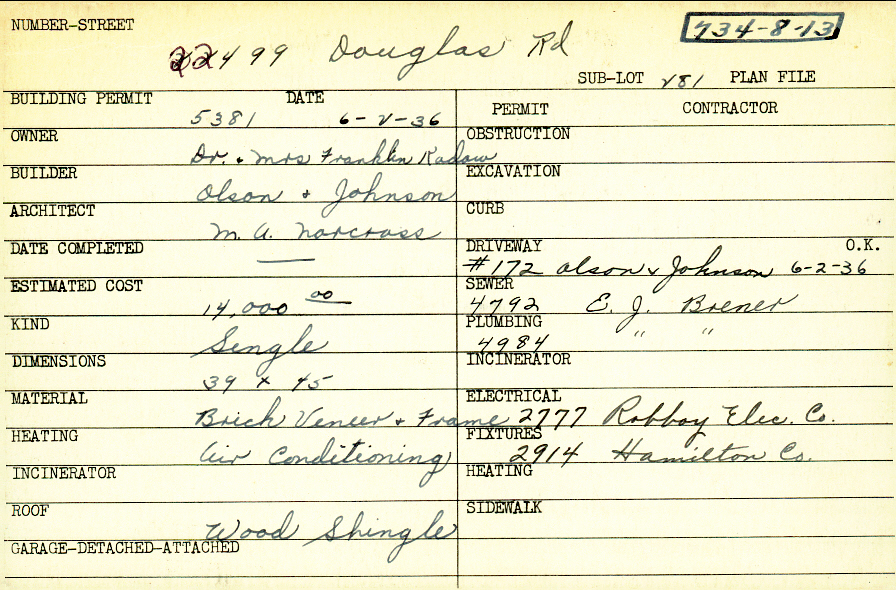 NUMBER-STREET
22499 Douglas Rd
734-8-13
SUB-LOT 281 PLAN FILE
BUILDING PERMIT 5381 DATE 6-2-36
OWNER Dr. & Mrs Franklin Kadow
BUILDER Olson & Johnson
ARCHITECT M. A. Norcross
DATE COMPLETED —
ESTIMATED COST 14,000 00
KIND Single
DIMENSIONS 39 x 45
MATERIAL Brick Veneer & Frame
HEATING Air Conditioning
INCINERATOR
ROOF Wood Shingle
GARAGE-DETACHED-ATTACHED
PERMIT CONTRACTOR
OBSTRUCTION
EXCAVATION
CURB
DRIVEWAY O.K.
#172 Olson & Johnson 6-2-36
SEWER
4792 E. J. Brener
PLUMBING
4984 " "
INCINERATOR
ELECTRICAL
2777 Robboy Elec. Co.
FIXTURES
2914 Hamilton Co.
HEATING
SIDEWALK